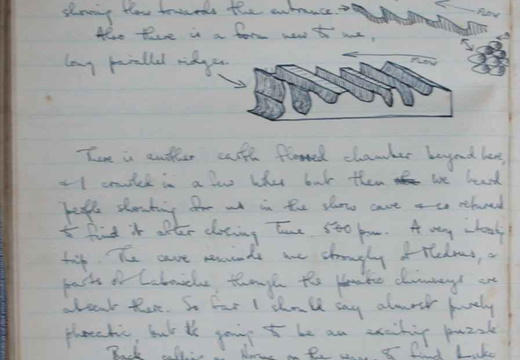 showing flow towards the entrance → FLOW
Also there is a form new to me,
long parallel ridges. FLOW
There is another earth floored chamber beyond here,
& I crawled in a few but then we heard
people shouting for us in the show cave & so returned
to find it after closing time 5.00 pm. A very
trip. The cave reminds me strongly of
parts of Labouiche, though the phreatic chimneys are
absent there. So far I should say almost purely
phreatic but it's going to be an exciting puzzle
Back on the way to find